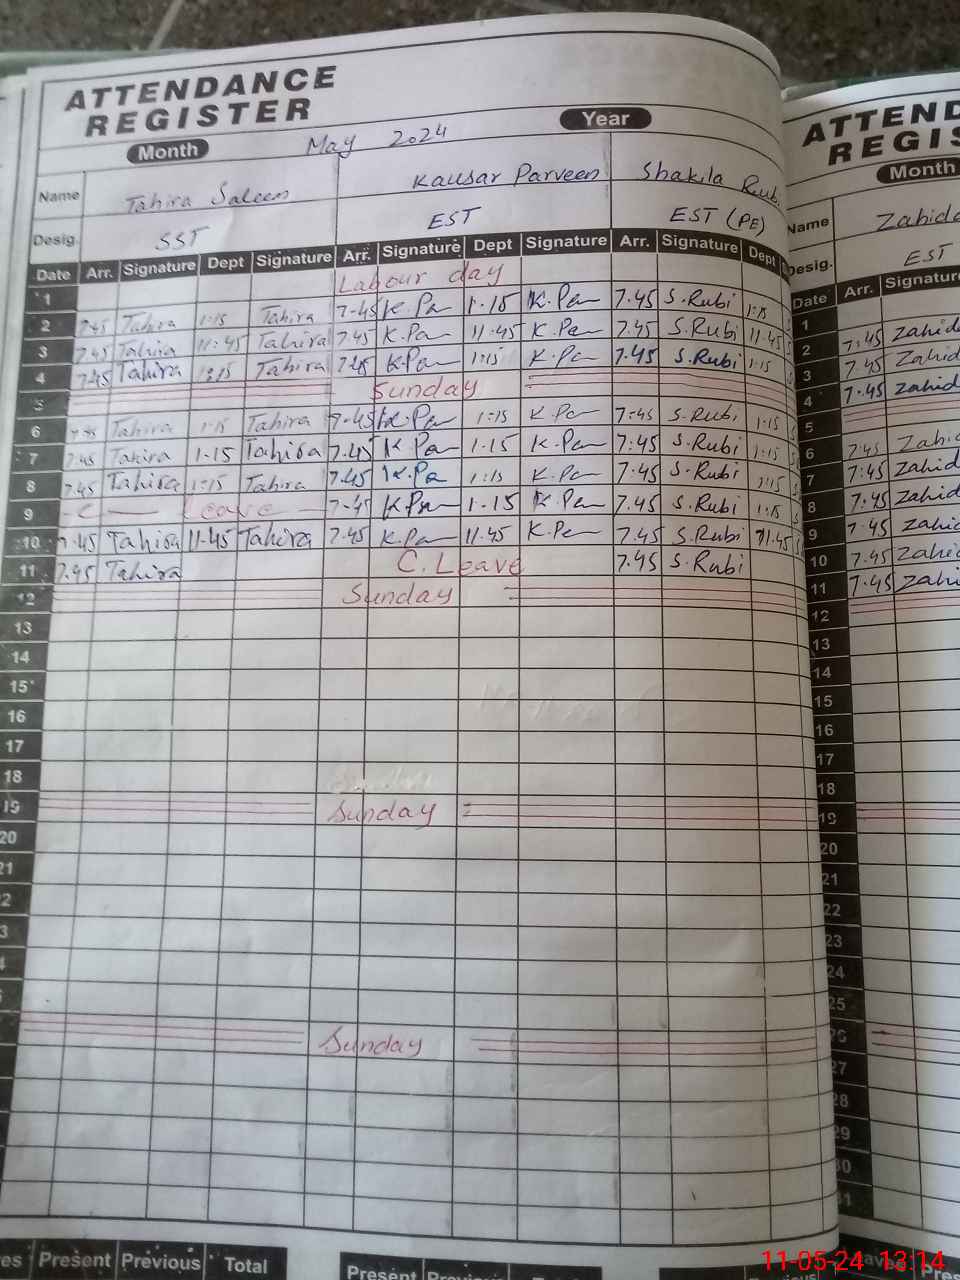 ATTENDANCE
REGISTER
Month May 2024 Year
Name Tahira Saleem Kausar Parveen Shakila Rubi
Desig. SST EST EST (PE)
Date Arr. Signature Dept Signature Arr. Signature Dept Signature Arr. Signature Dept
1 Labour day
2 7.45 Tahira 1:15 Tahira 7.45 K.Pa 1.15 K.Pa 7.45 S.Rubi 1:15
3 7.45 Tahira 11:45 Tahira 7.45 K.Pa 11.45 K.Pa 7.45 S.Rubi 11.45
4 7.45 Tahira 1:15 Tahira 7.45 K.Pa 1:15 K.Pa 7.45 S.Rubi 1:15
5 Sunday
6 7:45 Tahira 1:15 Tahira 7.45 K.Pa 1:15 K.Pa 7:45 S.Rubi 1:15
7 7.45 Tahira 1.15 Tahira 7.45 K.Pa 1.15 K.Pa 7:45 S.Rubi 1:15
8 7.45 Tahira 1:15 Tahira 7.45 K.Pa 1:15 K.Pa 7.45 S.Rubi 1:15
9 C Leave 7.45 K.Pa 1.15 K.Pa 7.45 S.Rubi 1:15
10 7.45 Tahira 11.45 Tahira 7.45 K.Pa 11.45 K.Pa 7.45 S.Rubi 11.45
11 7.45 Tahira C.Leave 7.45 S.Rubi
12 Sunday
13
14
15
16
17
18
19 Sunday
20
21
2
3
Sunday
Present Previous Total
Present
ATTEND
REGIS
Month
Name Zahida
Desig. EST
Date Arr. Signature
1
2 7:45 Zahid
3 7.45 Zahid
4 7.45 Zahid
5
6 7:45 Zahid
7 7:45 Zahid
8 7:45 Zahid
9 7.45 Zahid
10 7.45 Zahid
11 7.45 Zahi
12
13
14
15
16
17
18
19
20
21
22
23
24
25
26
27
28
29
30
31
11-05-24 13:14